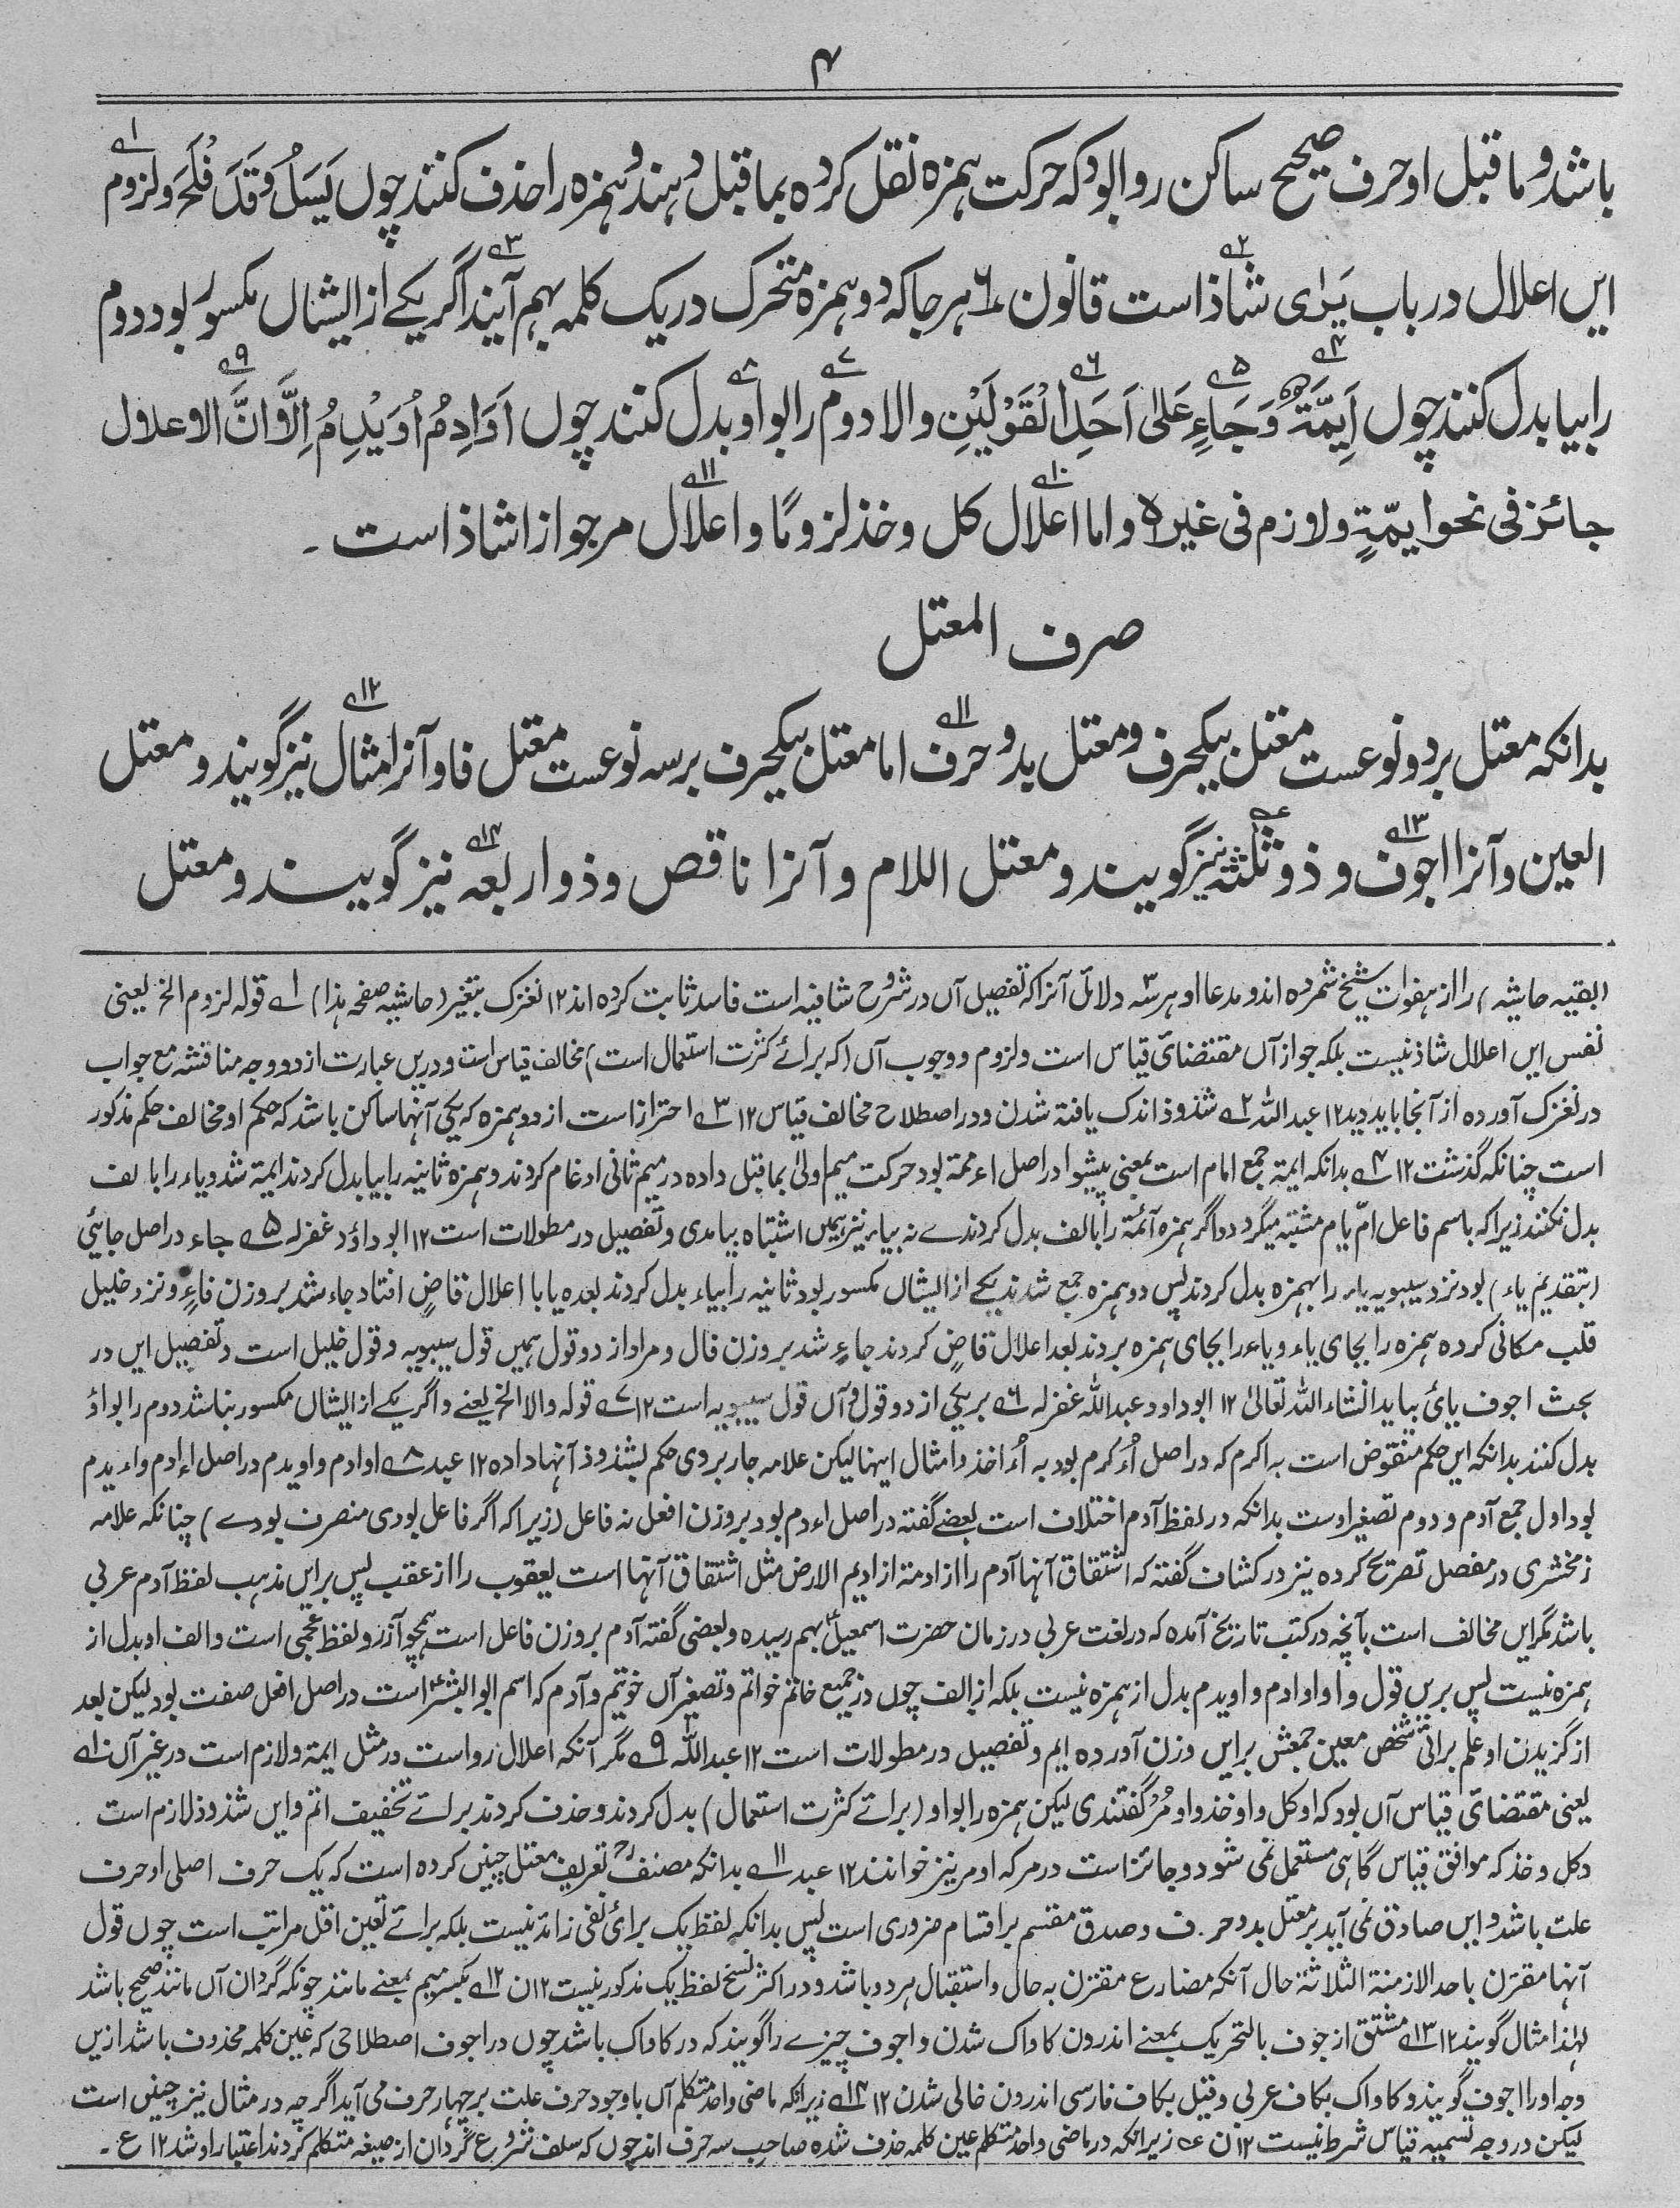 ۴
باشد و ما قبل او حرف صحیح ساکن روا بود که حرکت ہمزه نقل کرده بما قبل دہند و ہمزه را حذف کنند چوں یَسَلُ و قَدَ فْلَحَ و لزوم ۱؎
ایں اعلال در باب یَرٰی شاذ ۲؎ است قانون ۶ ہر جا که دو ہمزه متحرک در یک کلمه بہم آیند ۳؎ اگر یکے از ایشاں مکسور بود دوم
را بیا بدل کنند چوں اَیِمَّةٌ ۴؎ وَ جَاءٍ ۵؎ عَلٰی اَحَدِ ۶؎ الْقَوْلَیْنِ والا دوم ۷؎ را بواو بدل کنند ۸؎ چوں اَوَادِمُ اُوَیْدِمُ اِلَّا ۹؎ اَنَّ الاعلال
جائز فی نحو ایمّةٍ و لازم فی غیره و اما اعلال ۱۰؎ کل و خذ لزومًا و اعلال ۱۱؎ مر جوازا شاذ است ۔
صرف المعتل
بدانکه معتل بر دو نوعست معتل بیکحرف و معتل بدو حرف ۱۱؎ اما معتل بیکحرف بر سه نوعست معتل فا و آنرا مثال ۱۲؎ نیز گویند و معتل
العین و آنرا اجوف ۱۳؎ و ذو ثلثه نیز گویند و معتل اللام و آنرا ناقص و ذو اربعه ۱۴؎ نیز گویند و معتل
(بقیه حاشیه) را از ہفوات شیخ شمرده اند و مدعا او ہر سّه دلائل آنرا که تفصیل آں در شروح شافیه است فاسد ثابت کرده اند ۱۲ نغزک بتغیر (حاشیه صفحه ہذا) ۱؎ قوله لزوم الخ یعنی
نفس ایں اعلال شاذ نیست بلکه جواز آں مقتضائ قیاس است و لزوم و وجوب آں (که برائے کثرت استعمال است) مخالف قیاس است و دریں عبارت از دو وجه مناقشه مع جواب
در نغزک آورده از آنجا باید دید ۱۲ عبد اللہ ۲؎ شذوذ اندک یافته شدن و در اصطلاح مخالف قیاس ۱۲ ۳؎ احتراز است از دو ہمزه که یکی آنہا ساکن باشد که حکم او مخالف حکم مذکور
است چنانکه گذشت ۱۲ ۴؎ بدانکه ایمة جمع امام است بمعنی پیشوا در اصل اءممة بود حرکت میم اولیٰ بما قبل داده در میم ثانی ادغام کردند و ہمزه ثانیه را بیا بدل کردند ایمة شد و یاء را بالف
بدل نکنند زیرا که باسم فاعل امّ یام مشتبه میگردد و اگر ہمزه آئمة را بالف بدل کردندے نه بیاء نیز ہمیں اشتباه بیامدی و تفصیل در مطولات است ۱۲ ابو داؤد غفرله ۵؎ جاء در اصل جایئی
(بتقدیم یاء) بود نزد سیبویه یاء را بہمزه بدل کردند پس دو ہمزه جمع شدند یکے از ایشاں مکسور بود ثانیه را بیاء بدل کردند بعده یا با اعلال قاضٍ افتاد جاء شد بر وزن فاءٍ و نزد خلیل
قلب مکانی کرده ہمزه را بجای یاء و یاء را بجای ہمزه بردند بعد اعلال قاضٍ کردند جاءٍ شد بر وزن فال و مراد از دو قول ہمیں قول سیبویه و قول خلیل است و تفصیل ایں در
بحث اجوف یائ بیاید انشاء اللہ تعالیٰ ۱۲ ابو داود عبد اللہ غفرله ۶؎ بر یکی از دو قول و آں قول سیبویه است ۱۲ ۷؎ قوله والا الخ یعنے و اگر یکے از ایشاں مکسور نباشد دوم را بواؤ
بدل کنند بدانکه ایں حکم منقوض است به اکرم که در اصل اُءَکرم بود به اُءاخذ و امثال اینہا لیکن علامه جار بردی حکم بشذوذ آنہا داده ۱۲ عبد ۸؎ اوادم و اویدم در اصل اءادم و اءیدم
بود اول جمع آدم و دوم تصغیر اوست بدانکه در لفظ آدم اختلاف است بعضے گفته در اصل اءدم بود بر وزن افعل نه فاعل (زیرا که اگر فاعل بودی منصرف بودے) چنانکه علامه
زمخشری در مفصل تصریح کرده نیز در کشاف گفته که اشتقاق آنہا آدم را از ادمة از ادیم الارض مثل اشتقاق آنہا است یعقوب را از عقب پس بر ایں مذہب لفظ آدم عربی
باشد مگر ایں مخالف است بآنچه در کتب تاریخ آمده که در لغت عربی در زمان حضرت اسمعیلؑ بہم رسیده و بعضی گفته آدم بر وزن فاعل است ہمچو آزر و لفظ عجمی است و الف او بدل از
ہمزه نیست پس بریں قول واو اوادم و اویدم بدل از ہمزه نیست بلکه از الف چوں در جمیع خاتم خواتم و تصغیر آں خویتم و آدم که اسم ابو البشرؑ است در اصل افعل صفت بود لیکن بعد
از گزیدن او علم برائی شخص معین جمعش بر ایں وزن آورده ایم و تفصیل در مطولات است ۱۲ عبد اللہ ۹؎ مگر آنکه اعلال رواست در مثل ایمة و لازم است در غیر آں ۱۰؎
یعنی مقتضائ قیاس آں بود که اوکل و اوخذ و اومُر گفتندی لیکن ہمزه را بواو (برائے کثرت استعمال) بدل کردند و حذف کردند برائے تخفیف اتم و ایں شذوذ لازم است
دکل و خذ که موافق قیاس گاہی مستعمل نمی شود و جائز است در مر که اومر نیز خوانند ۱۲ عبد ۱۱؎ بدانکه مصنفؒ تعریف معتل چنیں کرده است که یک حرف اصلی او حرف
علت باشد و ایں صادق نمی آید بر معتل بدو حرف و صدق مقسم بر اقسام ضروری است پس بدانکه لفظ یک برائ نفی زائد نیست بلکه برائے تعین اقل مراتب است چوں قول
آنہا مقترن باحد الازمنة الثلاثة حال آنکه مضارع مقترن به حال و استقبال ہر دو باشد و در اکثر نسخ لفظ یک مذکور نیست ۱۲ ن ۱۲؎ بکسر میم بمعنے مانند چونکه گردان آں مانند صحیح باشد
لہٰذا مثال گویند ۱۲ ۱۳؎ مشتق از جوف بالتحریک بمعنے اندرون کاواک شدن و اجوف چیزے را گویند که در کاواک باشد چوں در اجوف اصطلاحی که عین کلمه محذوف باشد ازیں
وجه او را اجوف گویند و کاواک بکاف عربی و قیل بکاف فارسی اندرون خالی شدن ۱۲ ۱۴؎ زیرانکه ماضی واحد متکلم آں باوجود حرف علت بر چہار حرف می آید اگرچه در مثال نیز چنیں است
لیکن در وجه تسمیه قیاس شرط نیست ۱۲ ن عه زیرانکه در ماضی واحد متکلم عین کلمه حذف شده صاحب سه حرف اند چوں که سلف شروع گردان از صیغه متکلم کردند اعتبار او شد ۱۲ ع ۔